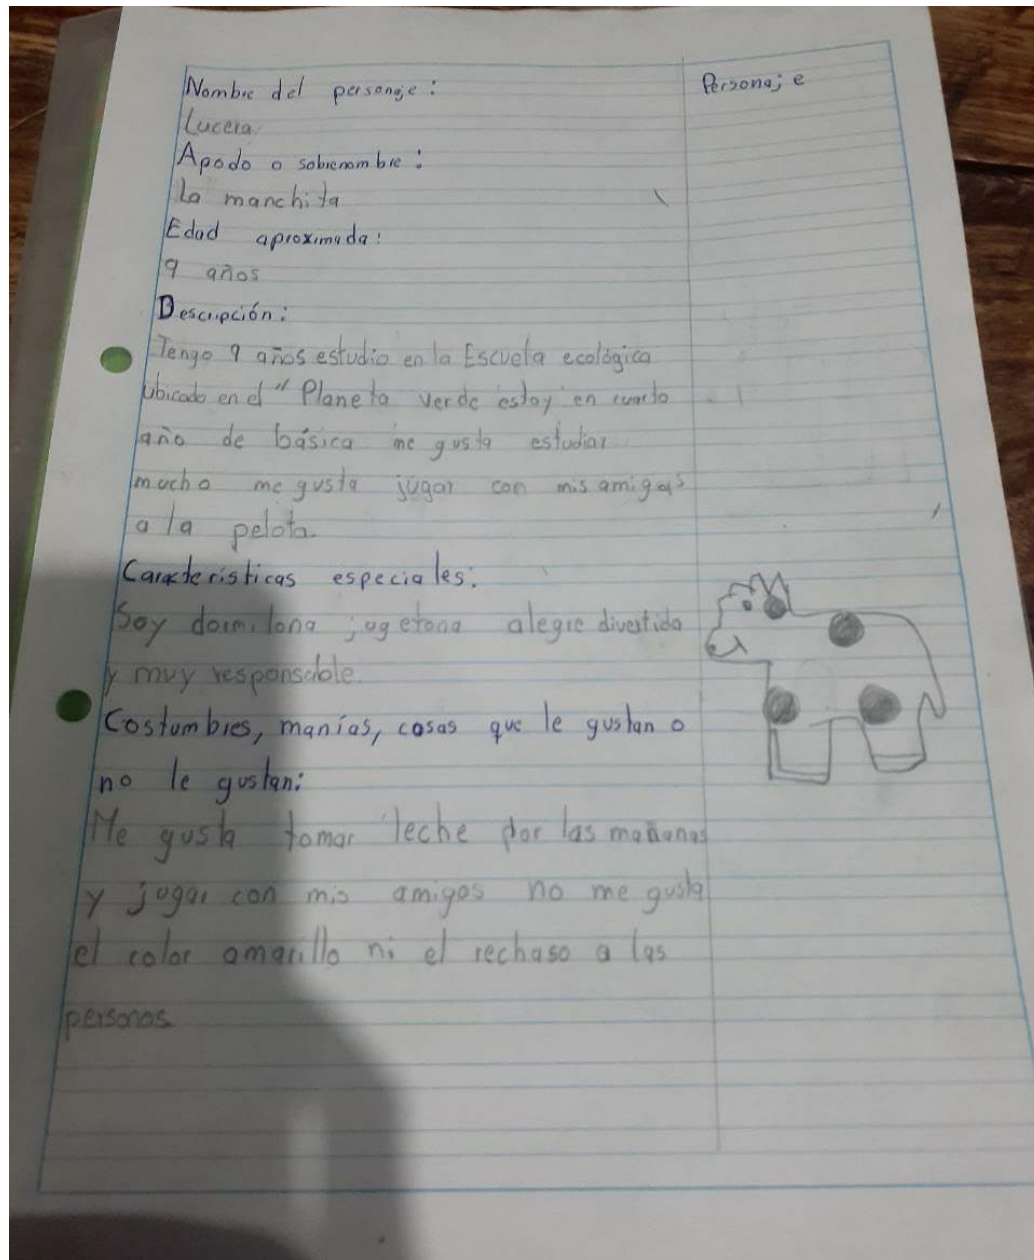 Nombre del personaje:
Personaje
Lucera
Apodo o sobrenombre:
La manchita
Edad aproximada:
9 años
Descripción:
Tengo 9 años estudio en la Escuela ecológica
ubicado en el " Planeta verde estoy en cuarto
año de básica me gusta estudiar
mucho me gusta jugar con mis amigos
a la pelota.
Características especiales:
Soy dormilona jugetona alegre divertida
y muy responsable.
Costumbres, manías, cosas que le gustan o
no le gustan:
Me gusta tomar leche por las mañanas
y jugar con mis amigos no me gusta
el color amarillo ni el rechaso a las
personas